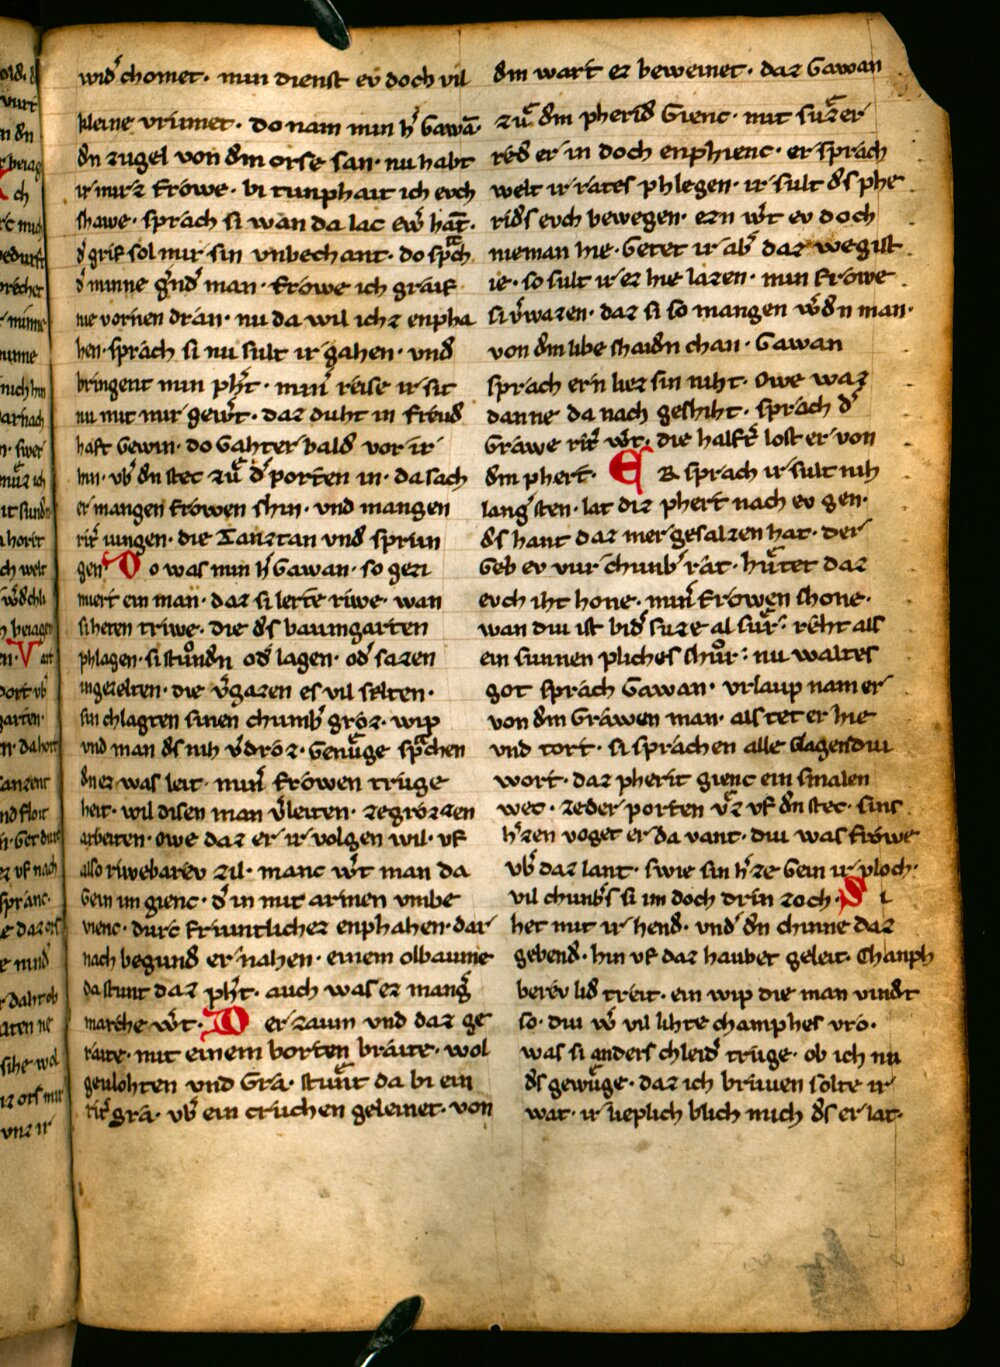 wid᾽ chomet· min dienst ev doch vil
kleine vrumet· do nam min h᾽ Gawā·
dn zugel von dm orse san· nu habt
ir mirz frowe· bi tunphait ich evch
shawe· sprach si wan da lac ew᾽ hāt·
d᾽ grif sol mir sin vnbechant· do sp᾽ch
d᾽ minne g᾽nd᾽ man· frowe ich graif
nie vornen dran· nu da wil ichz enpha
hen· sprach si nu sult ir gahen· vnd
bringent min ph᾽t· min᾽ reise ir sit
nu mit mir gew᾽t· daz duht in freud
haft gewin· do Gahter bald vor ir
hin· vb᾽ dn stec zů d᾽ porten in· da sach
er mangen frowen shin· vnd mangen
rit᾽ iungen· die Tanztan vnd sprun
gen· Do was min h᾽ Gawan· so gezi
miert ein man· daz si lerte riwe· wan
si heten triwe· die ds baumgarten
phlagen· si stůndn od᾽ lagen· od᾽ sazen
ingezelten· die v᾽gazen es vil selten·
sin chlagten sinen chumb᾽ groz· wip
vnd man ds nih v᾽droz· Genůge sp᾽chen
dn ez was leit· min᾽ frowen truge
heit· wil disen man v᾽leiten· zegrozzen
arbeiten· owe daz er ir volgen wil· vf
also riwebarev zil· manc w᾽t man da
Gein im gienc· d᾽ in mit armen vmbe
vienc· durc friuntlichez enphahen· dar
nach begund er nahen· einem olbaume
da stunt daz ph᾽t· auch was ez mang᾽
marche w᾽t· Der zaum vnd daz ge
raite· mit einem borten braite· wol
geulohten vnd Gra· stůnt da bi ein
rit᾽ gra· vb᾽ ein cruchen geleinet· von
dm wart ez beweinet· daz Gawan
zů dm pherid Gienc· mit sůzer
red er in doch enphienc· er sprach
welt ir rates phlegen· ir sult ds phe
rids evch bewegen· ezn w᾽t ev doch
nieman hie· Getet ir ab᾽ daz wegist
ie· so sult ir ez hie lazen· min frowe
si v᾽wazen· daz si so mangen w᾽dn man·
von dm libe shaidn chan· Gawan
sprach ern liez sin niht· Owe waz
danne da nach geshiht· sprach d᾽
Grawe rit᾽ w᾽t· die halft᾽ lost er von
dm phert· ER sprach ir sult nih
lang᾽ sten· lat diz phert nach ev gen·
ds hant daz mer gesalzen hat· der
Geb ev vur chunb᾽ rat· hůtet daz
evch iht hone· min᾽ frowen shone·
wan diu ist bid᾽ suze al sůr· reht als
ein sunnen pliches shůr· nu waltes
got sprach Gawan· vrlaup nam er
von dm Grawen man· als tet er hie
vnd tort· si sprachen alle klagendiu
wort· daz pherit gienc ein smalen
wec· zeder porten v᾽z vf dn stec· sins
h᾽zen voget er da vant· diu was frowe
vb᾽ daz lant· swie sin h᾽ze Gein ir vloch·
vil chunb᾽s si im doch drin zoch· Si
het mit ir hend· vnd᾽ dn chinne daz
gebend· hin vf daz haubet geleit· Chanph
berev lid treit· ein wip die man vindt
so· diu w᾽ vil lihte champhes vro·
was si anders chleid᾽ truge· ob ich nu
ds gewůge· daz ich pruuen solte ir
wat· ir lieplich blich mich ds er lat·